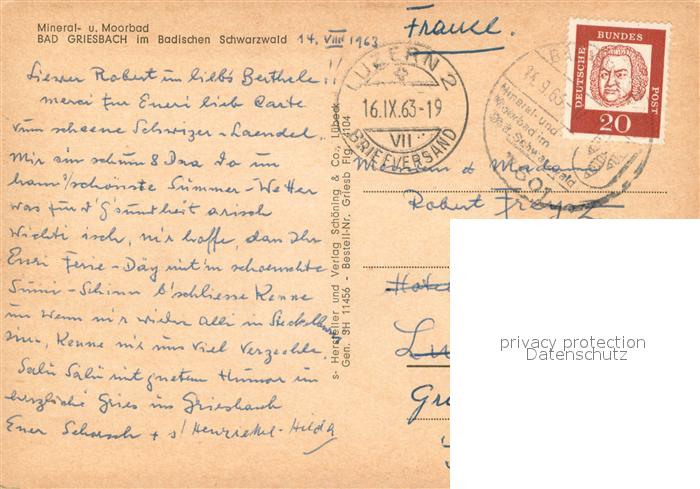 Mineral- u. Moorbad
BAD GRIESBACH im Badischen Schwarzwald 14. VIII 1963
France.
DEUTSCHE BUNDES POST
20
LUZERN 2
16.IX.63-19
VII
BRIEFVERSAND
14.9.63
Mineral- und
Moorbad im
Liewer Robert un liebs Berthele!!
merci fur Eueri lieb Carte
vum scheene Schwizer-Laendel.
Mir sin schun 8 Daa do un
hann's schönste Summer-Wetter
was fur d'G'sundheit arisch
wichti isch, mir hoffe, dan Ihr
Eueri Ferie-Däg mit'm schoenschte
Sunne-Schinn b'schliesse kenne
un wenn mir wieder alli in
sin, kenne mir uns viel verzehle.
Salü Salü mit guetem Humor un
herzliche Gries us Griesbach
Euer Schorsch + s' Henriette-Hilda
s- Hersteller und Verlag Schöning & Co., Lübeck
Gen. SH 11456 - Bestell-Nr. Griesb Fig. 4104
Monsieur & Madame
Robert
privacy protection
Datenschutz